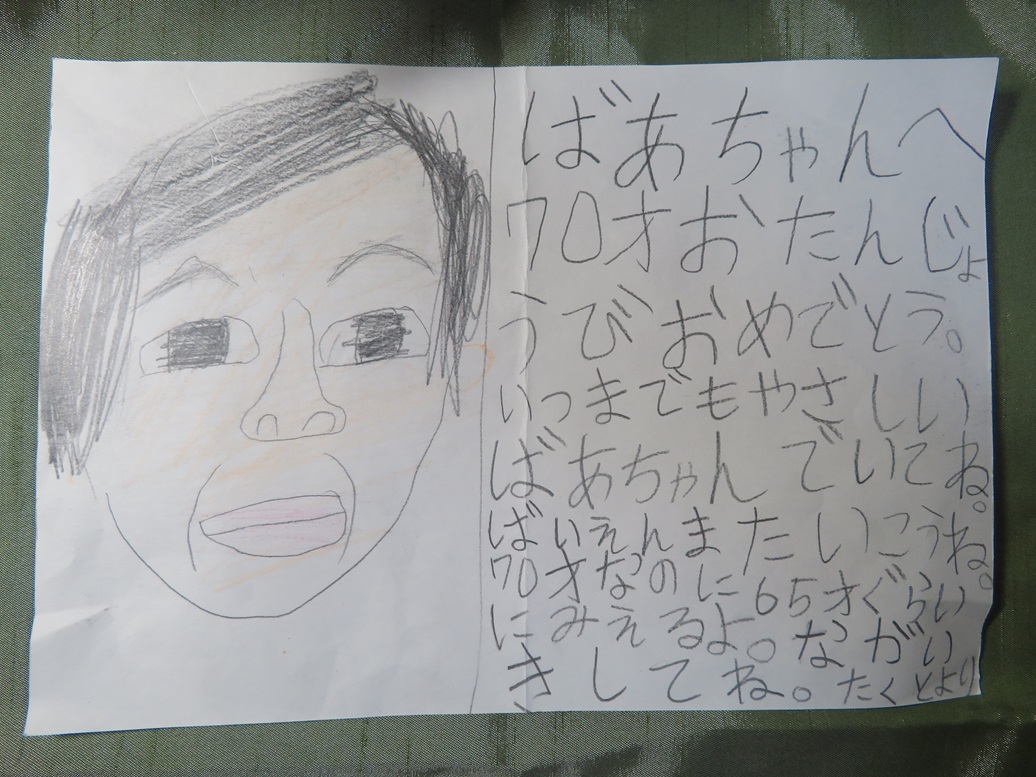 ばあちゃんへ
70才おたんじょ
うびおめでとう。
いつまでもやさしい
ばあちゃんでいてね。
ばいえんまたいこうね。
70才なのに65才ぐらい
にみえるよ。ながい
きしてね。たくとより